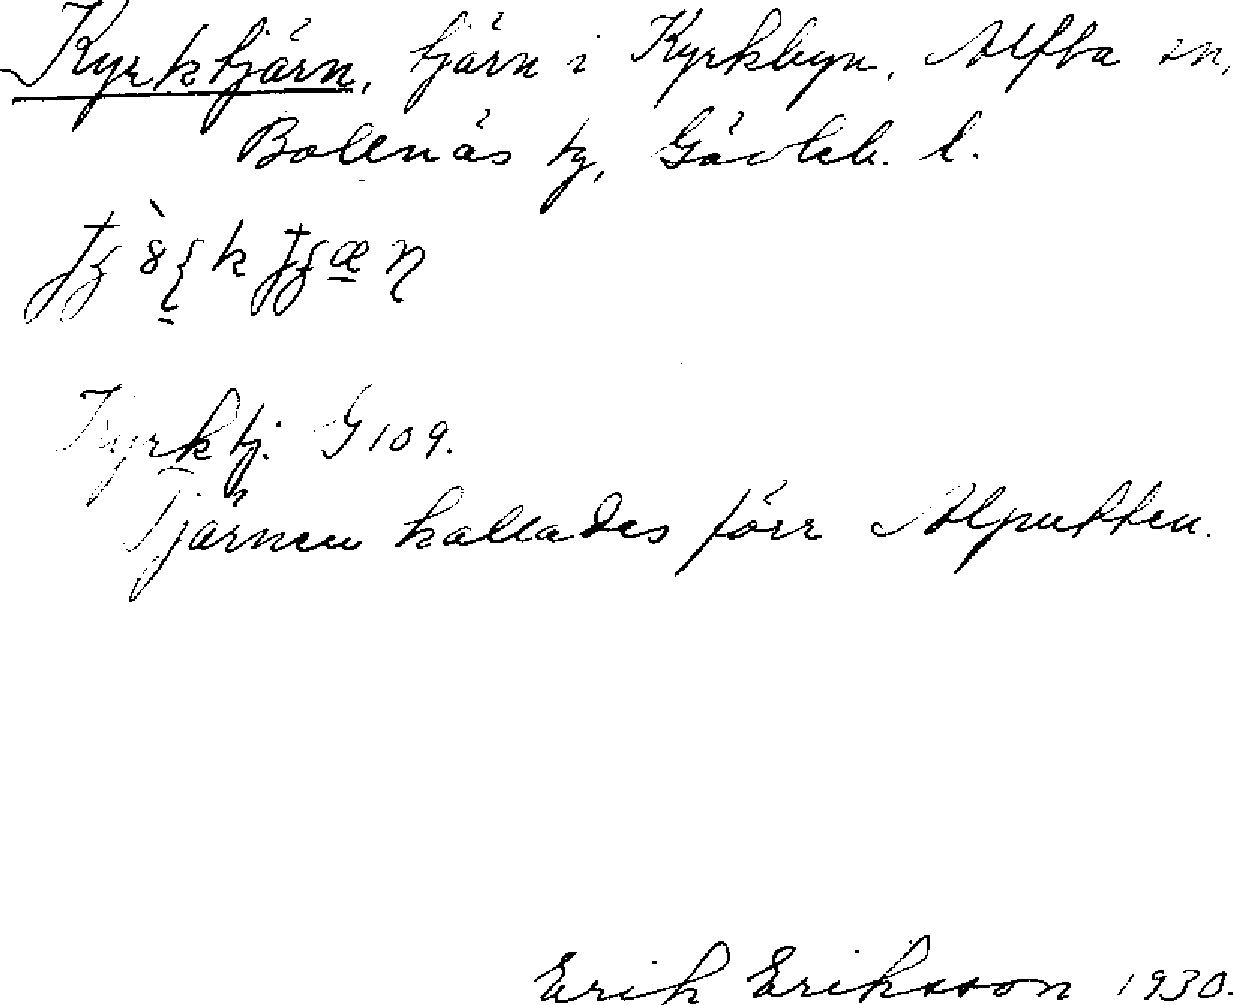 Kyrktjärn, tjärn i Kyrkbyn, Alfta sn,
Bollnäs tg, Gävleb. l.
Kyrktj. G 109.
Tjärnen kallades förr Alputten.
Erik Eriksson 1930.